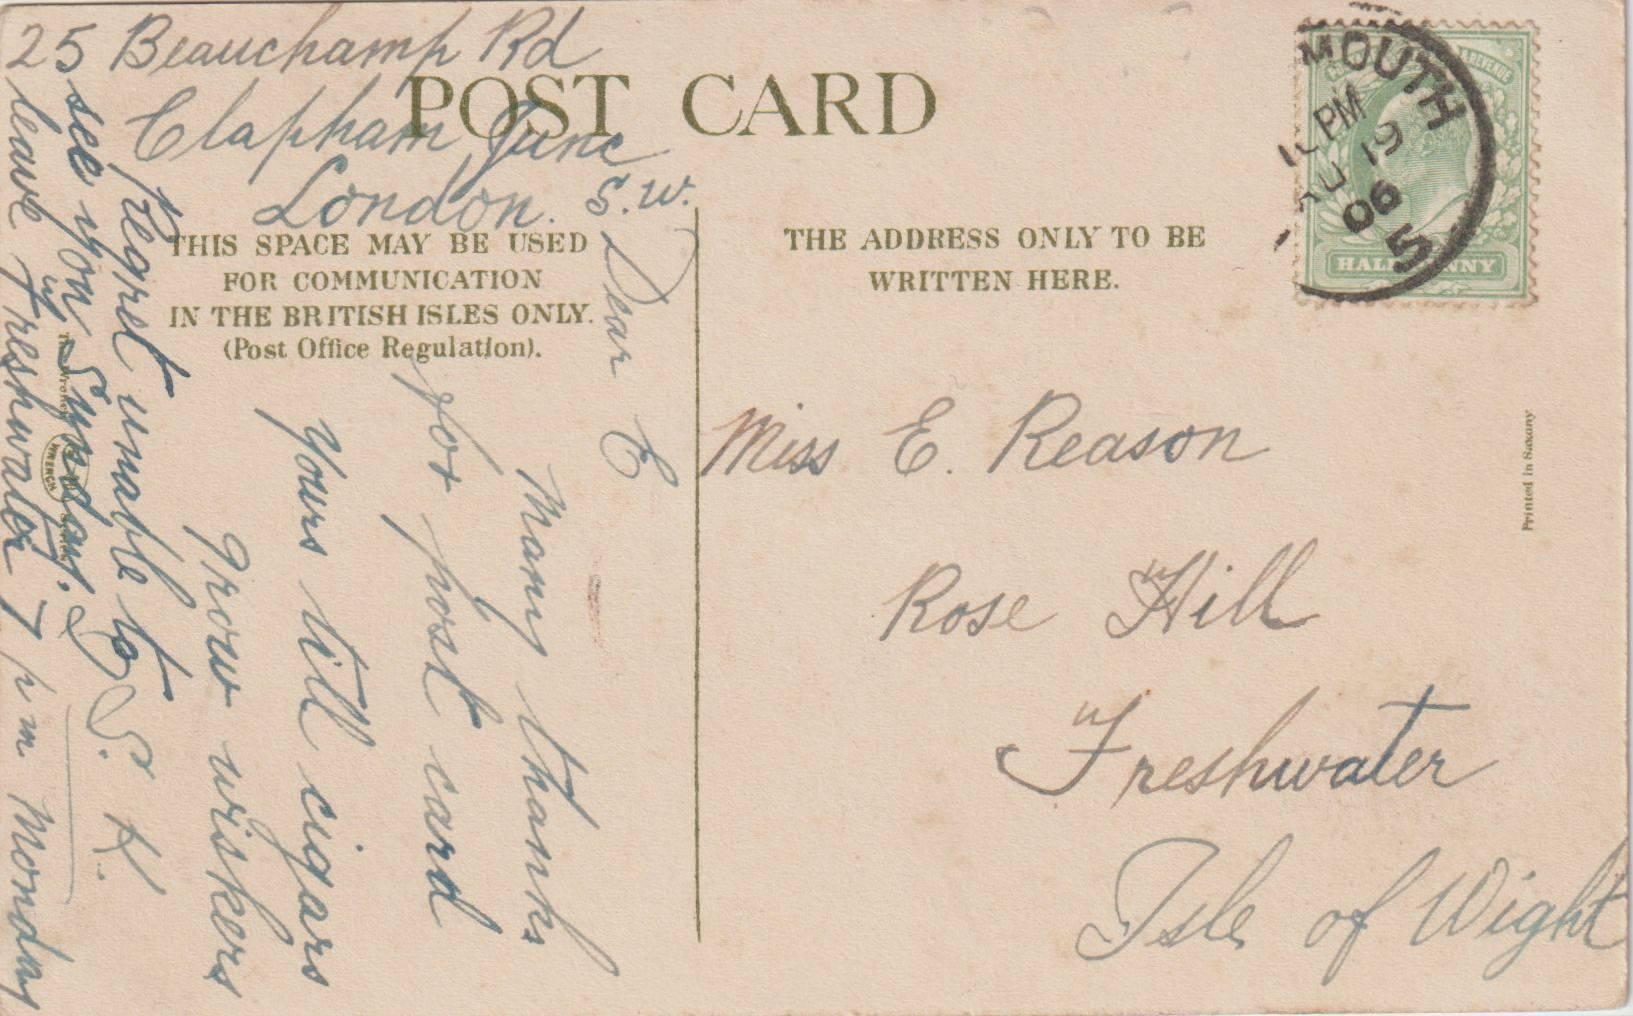 25 Beauchamp Rd
Clapham Junc
London. S.W.
POST CARD
THIS SPACE MAY BE USED
FOR COMMUNICATION
IN THE BRITISH ISLES ONLY.
(Post Office Regulation).
Dear E
Many thanks
for post card
yours till cigars
grow wiskers
S. K.
regret unable to
see you Sunday.
leave Freshwater 7 pm Monday
THE ADDRESS ONLY TO BE
WRITTEN HERE.
Miss E. Reason
Rose Hill
Freshwater
Isle of Wight
MOUTH
PM
19
06
5
REVENUE
HALFPENNY
Printed in Saxony
The Wrench Series
WRENCH